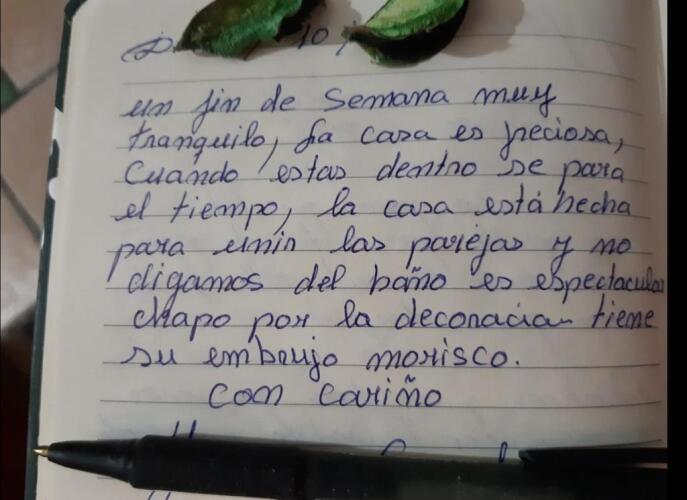 un fin de semana muy
tranquilo, la casa es preciosa,
Cuando estas dentro se para
el tiempo, la casa está hecha
para unir las parejas y no
digamos del baño es espectacular
chapo por la decoracion tiene
su embrujo morisco.
Con cariño